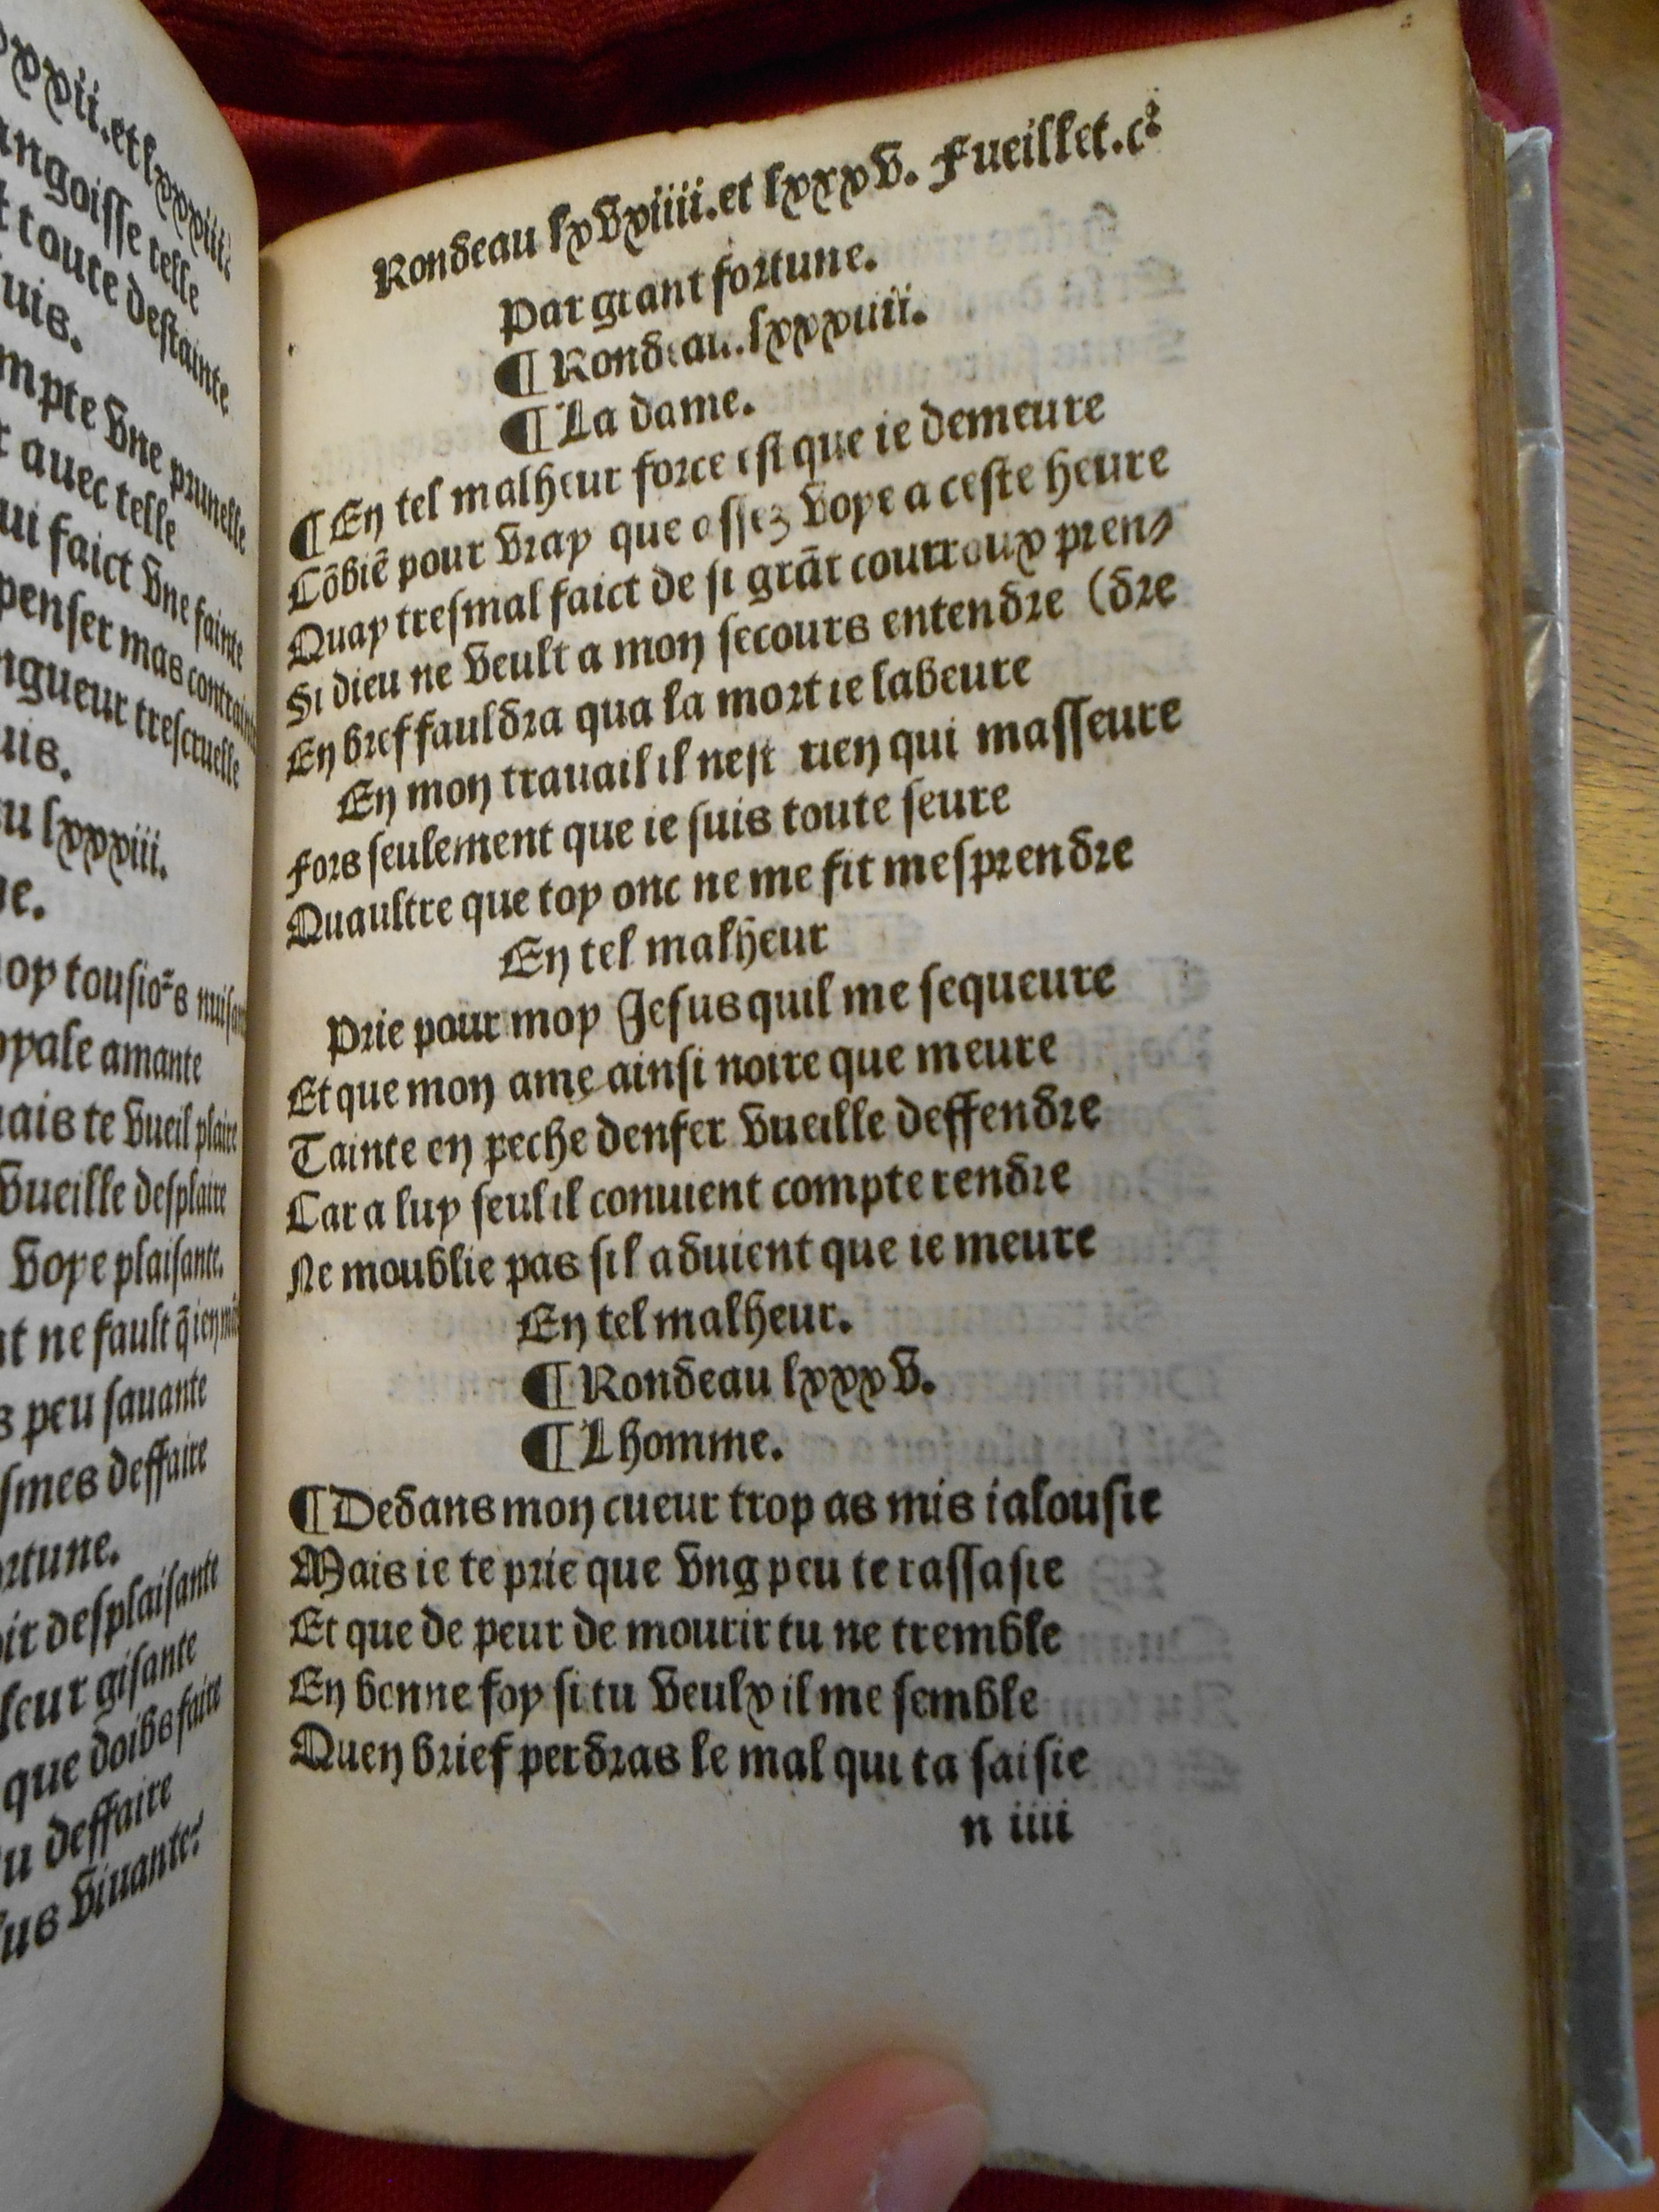 xxxii. et lxxxiii.
angoisse telle
t toute destainte
uis.
mpte vne prunelle
r auec telle
ui faict vne fainte
penser mas contrainte
ngueur trescruelle
uis.
u lxxxiii.
e.
oy tousiors
oyale amante
ais te vueil plaire
vueille desplaire
voye plaisante.
t ne fault q̃ ien
s peu sauante
smes deffaire
rtune.
ir desplaisante
leur gisante
que doibs faire
u deffaire
us viuante:
Rondeau lxvxiiii. et lxxxv. Fueillet.c
Par grant fortune.
¶ Rondeau. lxxxiiii.
¶ La dame.
¶ En tel malheur force est que ie demeure
Cõbiẽ pour vray que assez voye a ceste heure
Quay tresmal faict de si grãt courroux pren⸗
Si dieu ne veult a mon secours entendre (dre
En bref fauldra qua la mort ie labeure
En mon trauail il nest rien qui masseure
Fors seulement que ie suis toute seure
Quaultre que toy onc ne me fit mesprendre
En tel malheur
Prie pour moy Jesus quil me sequeure
Et que mon ame ainsi noire que meure
Tainte en peche denfer vueille deffendre
Car a luy seul il conuient compte rendre
Ne moublie pas sil aduient que ie meure
En tel malheur.
¶ Rondeau lxxxv.
¶ Lhomme.
¶ Dedans mon cueur trop as mis ialousie
Mais ie te prie que vng peu te rassasie
Et que de peur de mourir tu ne tremble
En bonne foy si tu veulx il me semble
Quen brief perdras le mal qui ta saisie
n iiii